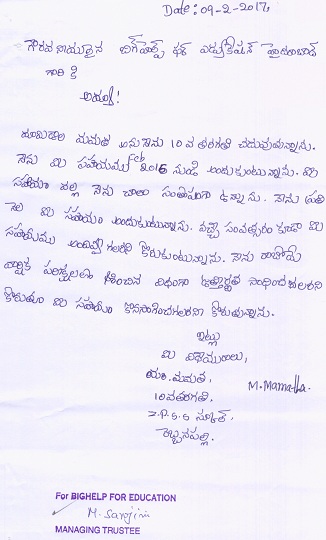 Date: 09-2-2017
గౌరవనీయులైన బిగ్ హెల్ప్ ఫర్ ఎడ్యుకేషన్ హైదరాబాద్
గారి కి
అయ్యా!
మమత అను నేను 10వ తరగతి చదువుచున్నాను.
నేను మీ సహాయము Feb 2016 నుండి అందుకుంటున్నాను. మీ
సహాయం వల్ల నేను చాలా సంతోషంగా ఉన్నాను. నేను ప్రతి
నెల మీ సహాయం అందుకుంటున్నాను. వచ్చే సంవత్సరం కూడా మీ
సహాయము కోరుకుంటున్నాను. నేను రాబోయే
వార్షిక పరీక్షలలో విధంగా ఉత్తీర్ణత
కోరుతూ మీ సహాయం కొనసాగించగలరని కోరుతున్నాను.
ఇట్లు
మీ విధేయురాలు,
యం. మమత, M. Mamatha.
10వ తరగతి.
Z.P.S.S స్కూల్,
రెబ్బనపల్లి.
For BIGHELP FOR EDUCATION
M. Sarojini
MANAGING TRUSTEE